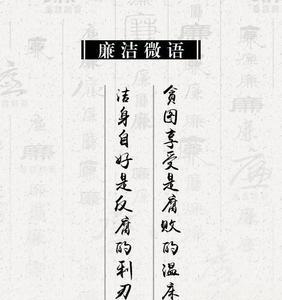 廉洁微语
贪图享受是腐败的温床
洁身自好是反腐的利刃